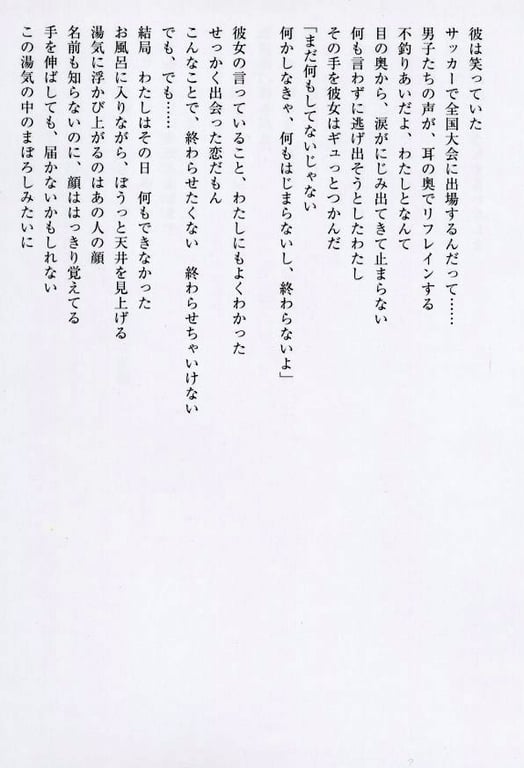 彼は笑っていた
サッカーで全国大会に出場するんだって……
男子たちの声が、耳の奥でリフレインする
不釣りあいだよ、わたしとなんて
目の奥から、涙がにじみ出てきて止まらない
何も言わずに逃げ出そうとしたわたし
その手を彼女はギュっとつかんだ
「まだ何もしてないじゃない
何かしなきゃ、何もはじまらないし、終わらないよ」
彼女の言っていること、わたしにもよくわかった
せっかく出会った恋だもん
こんなことで、終わらせたくない　終わらせちゃいけない
でも、でも……
結局　わたしはその日　何もできなかった
お風呂に入りながら、ぼうっと天井を見上げる
湯気に浮かび上がるのはあの人の顔
名前も知らないのに、顔ははっきり覚えてる
手を伸ばしても、届かないかもしれない
この湯気の中のまぼろしみたいに